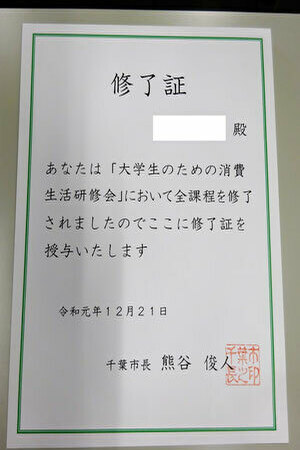 修了証
殿
あなたは「大学生のための消費
生活研修会」において全課程を修了
されましたのでここに修了証を
授与いたします
令和元年12月21日
千葉市長 熊谷 俊人
千葉市長之印